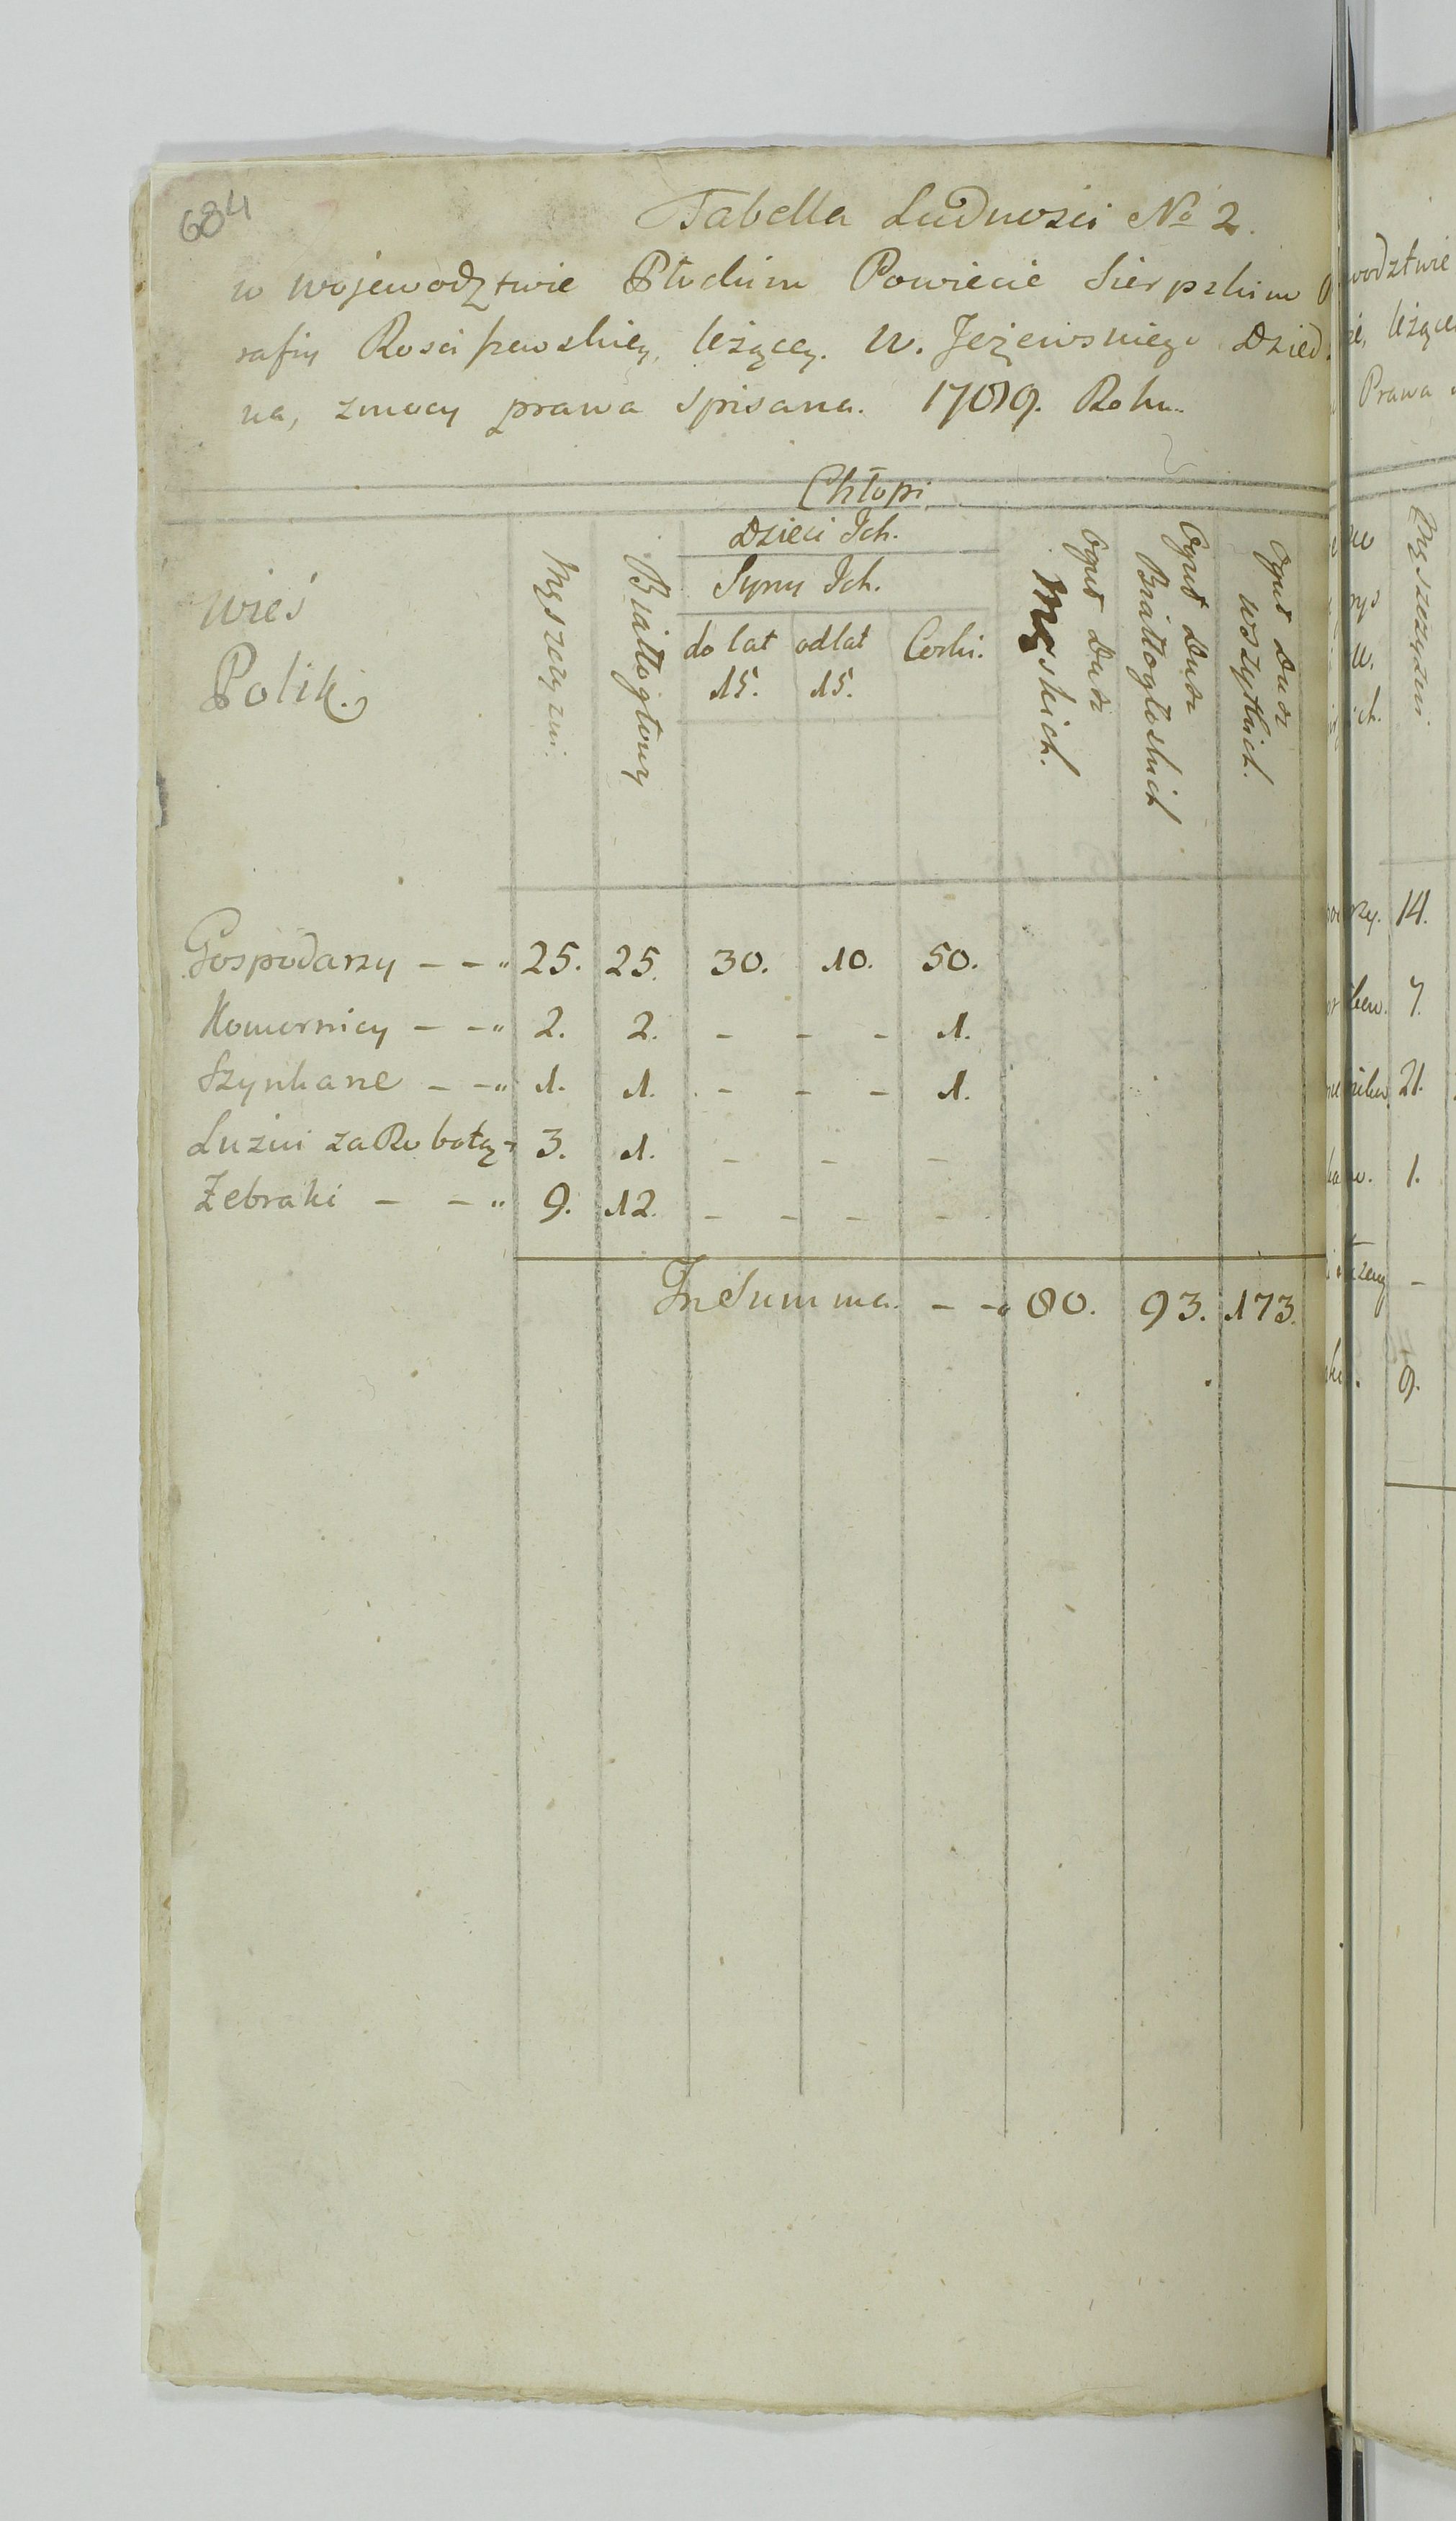 684
Tabella Ludnosci No 2.
w Wojewodztwie Płockim Powiecie Sierpskim
rafiy Rosciszewskiey, leżącey. W. Jeżewskiego Dzied
na, zmocy prawa spisana. 1789. Roku.
Chłopi.
Wieś
Polik.
Męszczyzni.
Białłogłowy
Dzieci Ich.
Syny Ich.
do lat 15.
od lat 15.
Corki.
Oguł Dusz Męskich.
Oguł Dusz Białłogłoskich
Oguł Dusz wszytkich.
Gospodarzy – – „ 25. 25. 30. 10. 50.
Komornicy – – „ 2. 2. – – – 1.
Szynkarze – – „ 1. 1. – – – 1.
Luzni za Robotą – 3. 1. – – –
Żebraki – – „ 9. 12. – – – –
In Summa. – – „ 80. 93. 173.
wodztwie
leżące
Prawa
Męszczyzni
14.
7.
21.
1.
–
9.